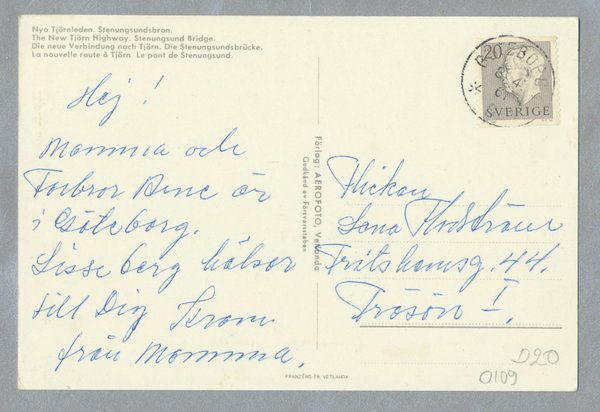 Nya Tjörnleden. Stenungsundsbron.
The New Tjörn Highway. Stenungsund Bridge.
Die neue Verbindung nach Tjörn. Die Stenungsundsbrücke.
La nouvelle route à Tjörn Le pont de Stenungsund.
Hej!
Mamma och
Farbror Arne är
i Göteborg.
Lisseberg hälsar
till Dig Kram
från Mamma.
Förlag: AEROFOTO, Vetlanda
Godkänd av Försvarsstaben
20
SVERIGE
GÖTEBORG
Flickan
Lena
Fritshemsg. 44.
Frösön 1.
FRANZÉNS TR. VETLANDA
D20
0109